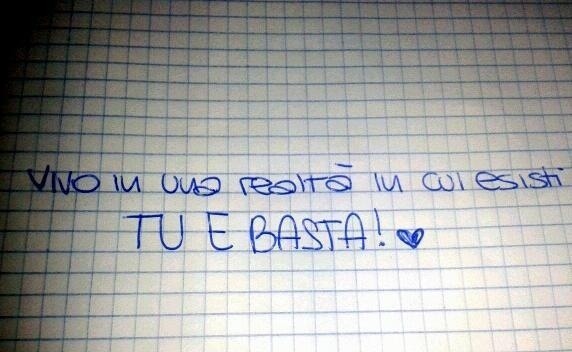 VIVO IN UNA REALTÀ IN CUI ESISTI
TU E BASTA! ♥